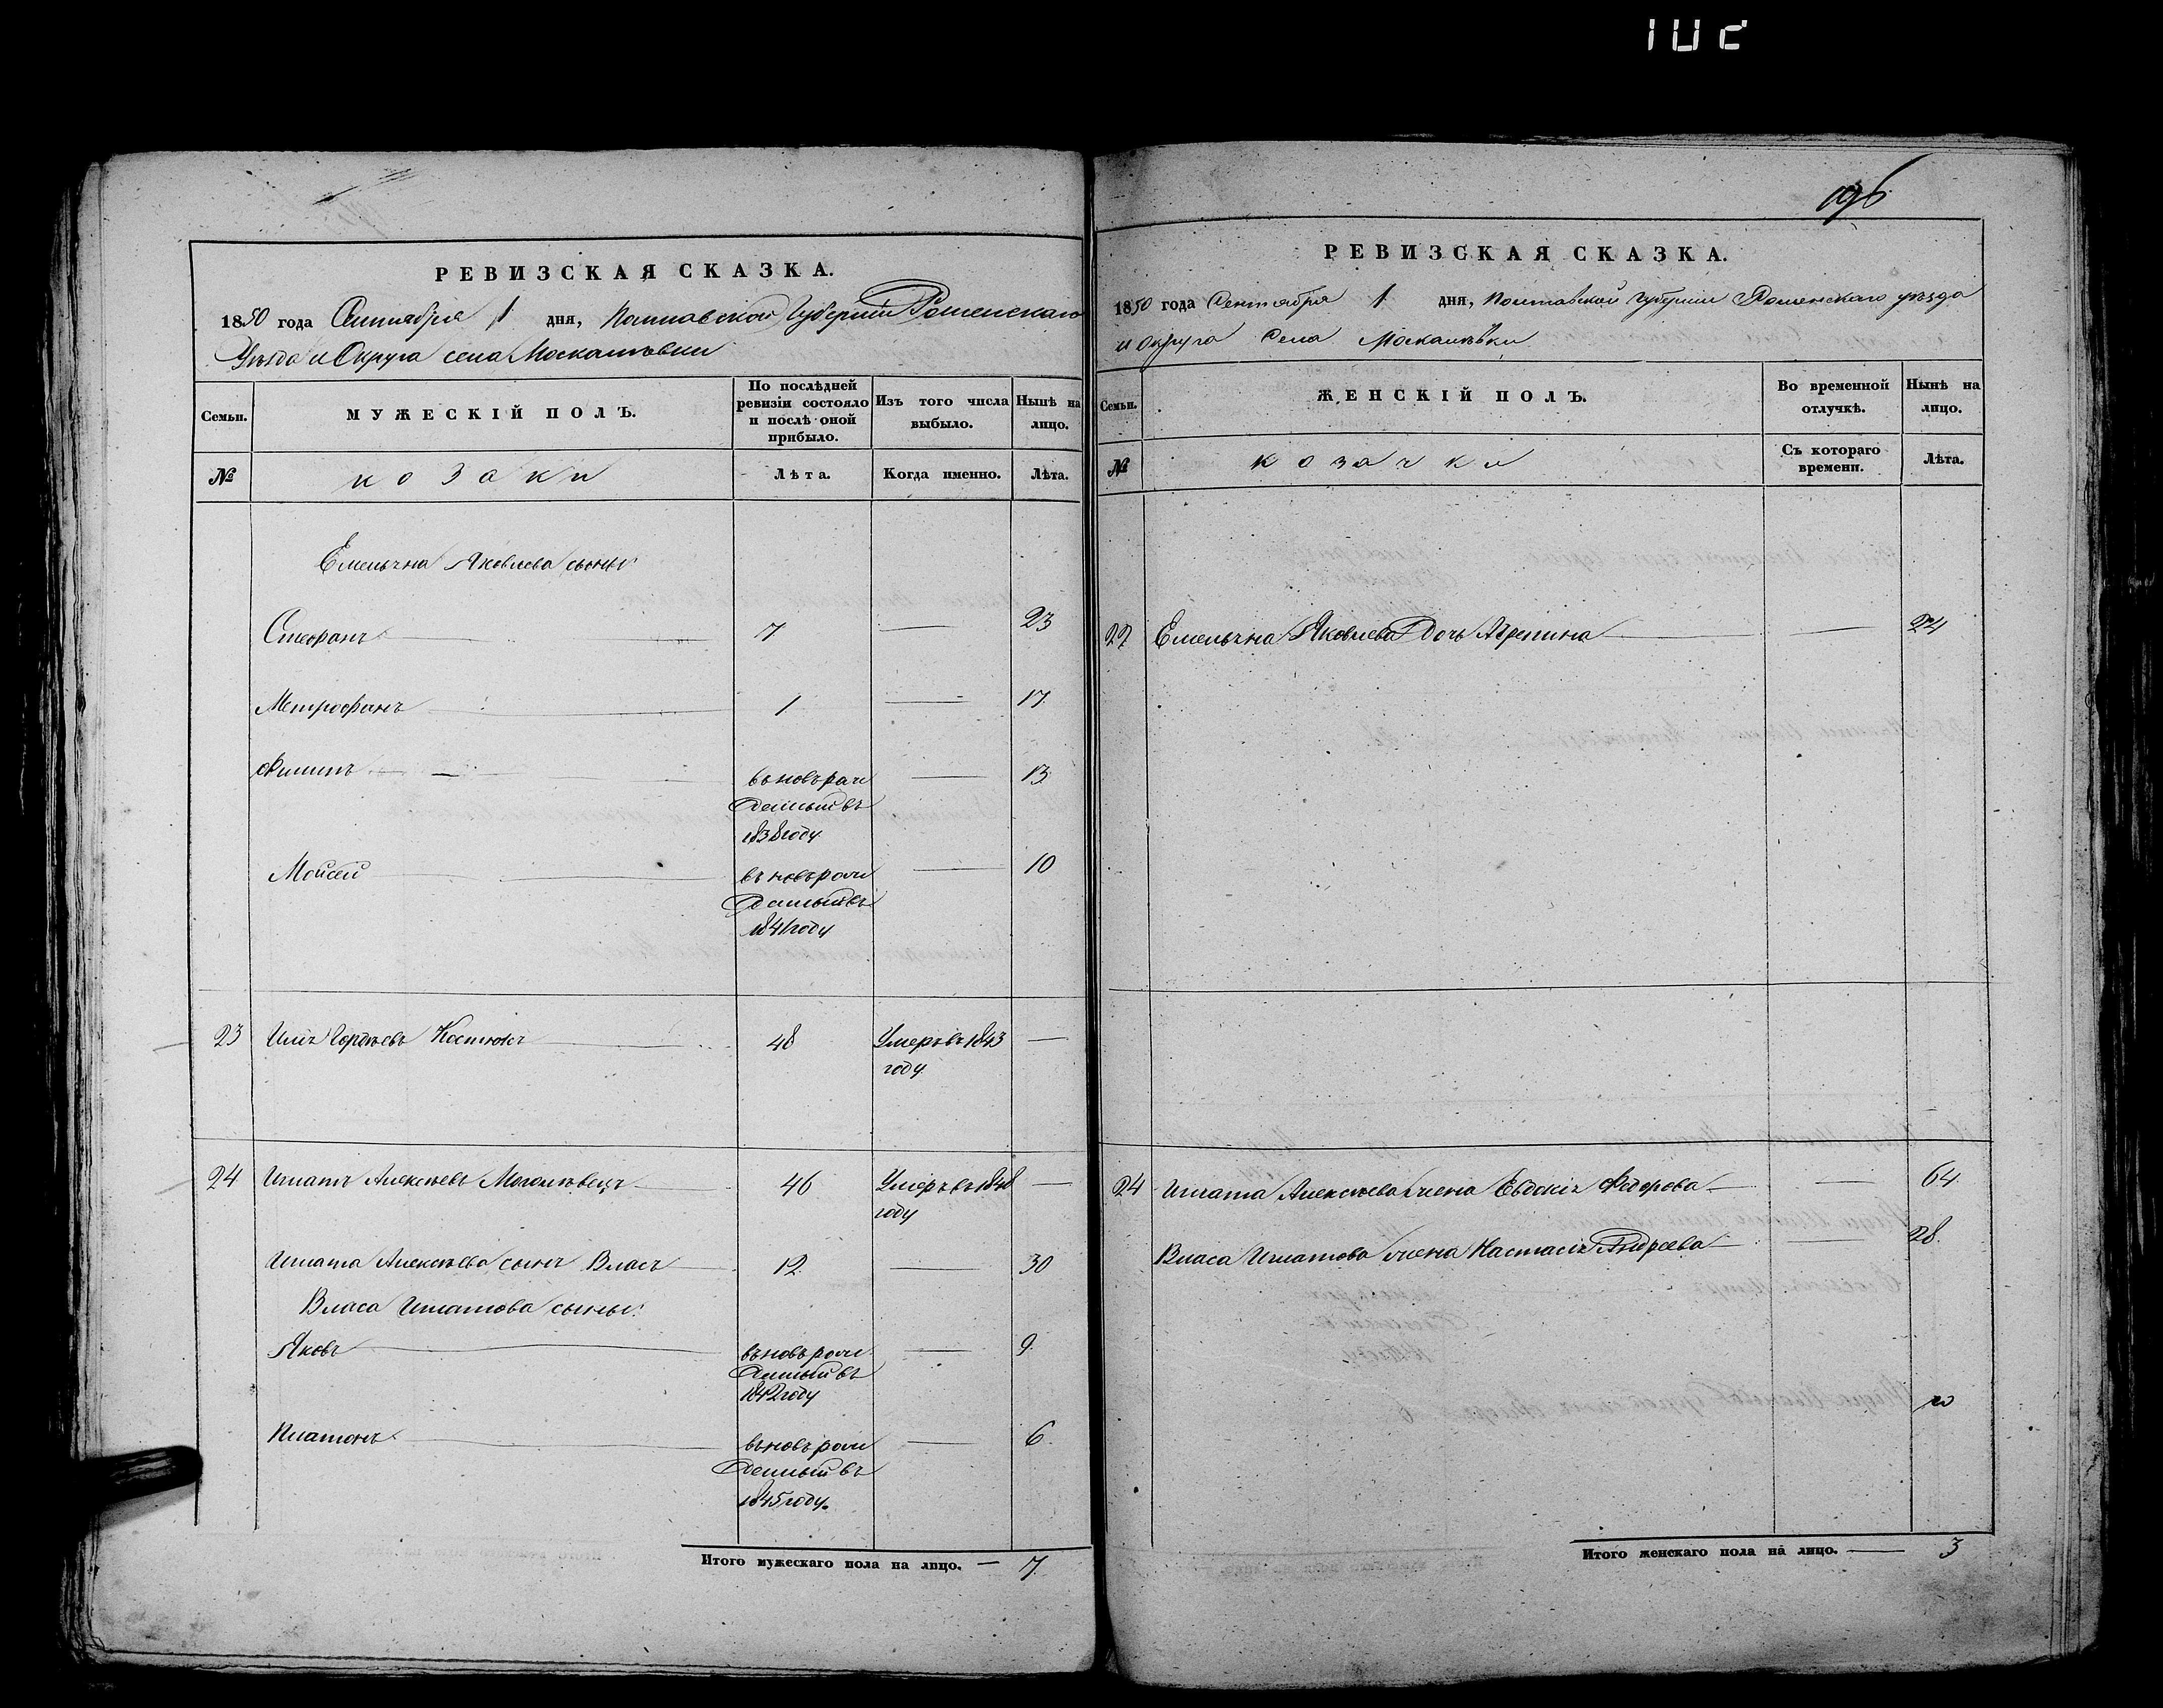 196
РЕВИЗСКАЯ СКАЗКА.
1850 года Сентября 1 дня, Полтавской Губернии Роменскаго
Уѣзда и Округа села Москалѣвки
Семьи. МУЖЕСКІЙ ПОЛЪ. По послѣдней ревизіи состояло и послѣ оной прибыло. Изъ того числа выбыло. Нынѣ на лицо.
№ козаки Лѣта. Когда именно. Лѣта.
Емельяна Яковлева сыны
Стефанъ 7 — 23
Метрофанъ 1 — 17
Филипъ въновь рож — 13
денный въ
1838 году
Мойсей въновь рож — 10
денный въ
1841 году
23 Гордѣевъ Костюкъ 48 Умеръ въ 1843 —
году
24 Игнатъ Алексѣевъ 46 Умеръ въ 1848 —
году
Игната Алексѣева сынъ Власъ 12 — 30
Власа Игнатова сыны
Яковъ въновь рож — 9
денный въ
1842 году
Платонъ въновь рож — 6
денный въ
1845 году.
Итого мужескаго пола на лицо. — 7
РЕВИЗСКАЯ СКАЗКА.
1850 года Сентября 1 дня, Полтавской Губернии Роменскаго уѣзда
и Округа Села Москалѣвки
Семьи. ЖЕНСКІЙ ПОЛЪ. Во временной отлучкѣ. Нынѣ на лицо.
№ козачки Съ котораго времени. Лѣта.
22 Емельяна Яковлева Дочь Агрепина — 24
24 Игната Алексѣева жена Евдокія Федорова — 64
Власа Игнатова жена Настасія Андреева — 28
Итого женскаго пола на лицо. — 3